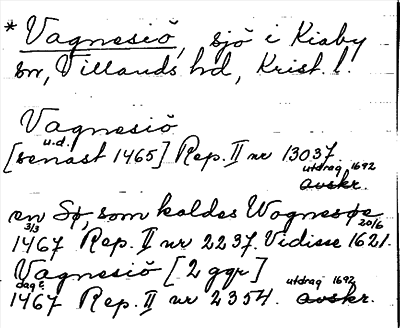 * Vagnesiö, sjö i Kiaby
sn, Villands hd, Krist. l.
Vagnesiö
u.d.
[senast 1465] Rep. II nr 13037
utdrag 1692
avskr.
en Sø, som kaldes Wognesøe
3/3 20/6
1467 Rep. II nr 2237. Vidisse 1621.
Vagnesiö [2 ggr]
dag e. utdrag 1692
1467 Rep. II nr 2354. avskr.